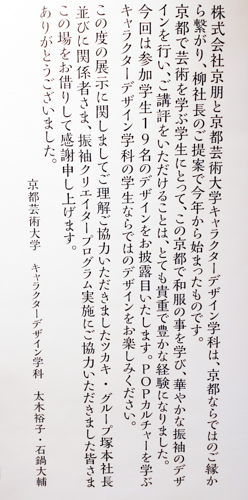 株式会社京朋と京都芸術大学キャラクターデザイン学科は、京都ならではのご縁か
ら繋がり、柳社長のご提案で今年から始まったものです。
京都で芸術を学ぶ学生にとって、この京都で和服の事を学び、華やかな振袖のデザ
インを行い、ご講評をいただけることは、とても貴重で豊かな経験になりました。
今回は参加学生19名のデザインをお披露目いたします。POPカルチャーを学ぶ
キャラクターデザイン学科の学生ならではのデザインをお楽しみください。
この度の展示に関しましてご理解ご協力いただきましたツカキ・グループ塚本社長
並びに関係者さま、振袖クリエイタープログラム実施にご協力いただきました皆さま
この場をお借りして感謝申し上げます。
ありがとうございました。
京都芸術大学 キャラクターデザイン学科 太木裕子・石鍋大輔